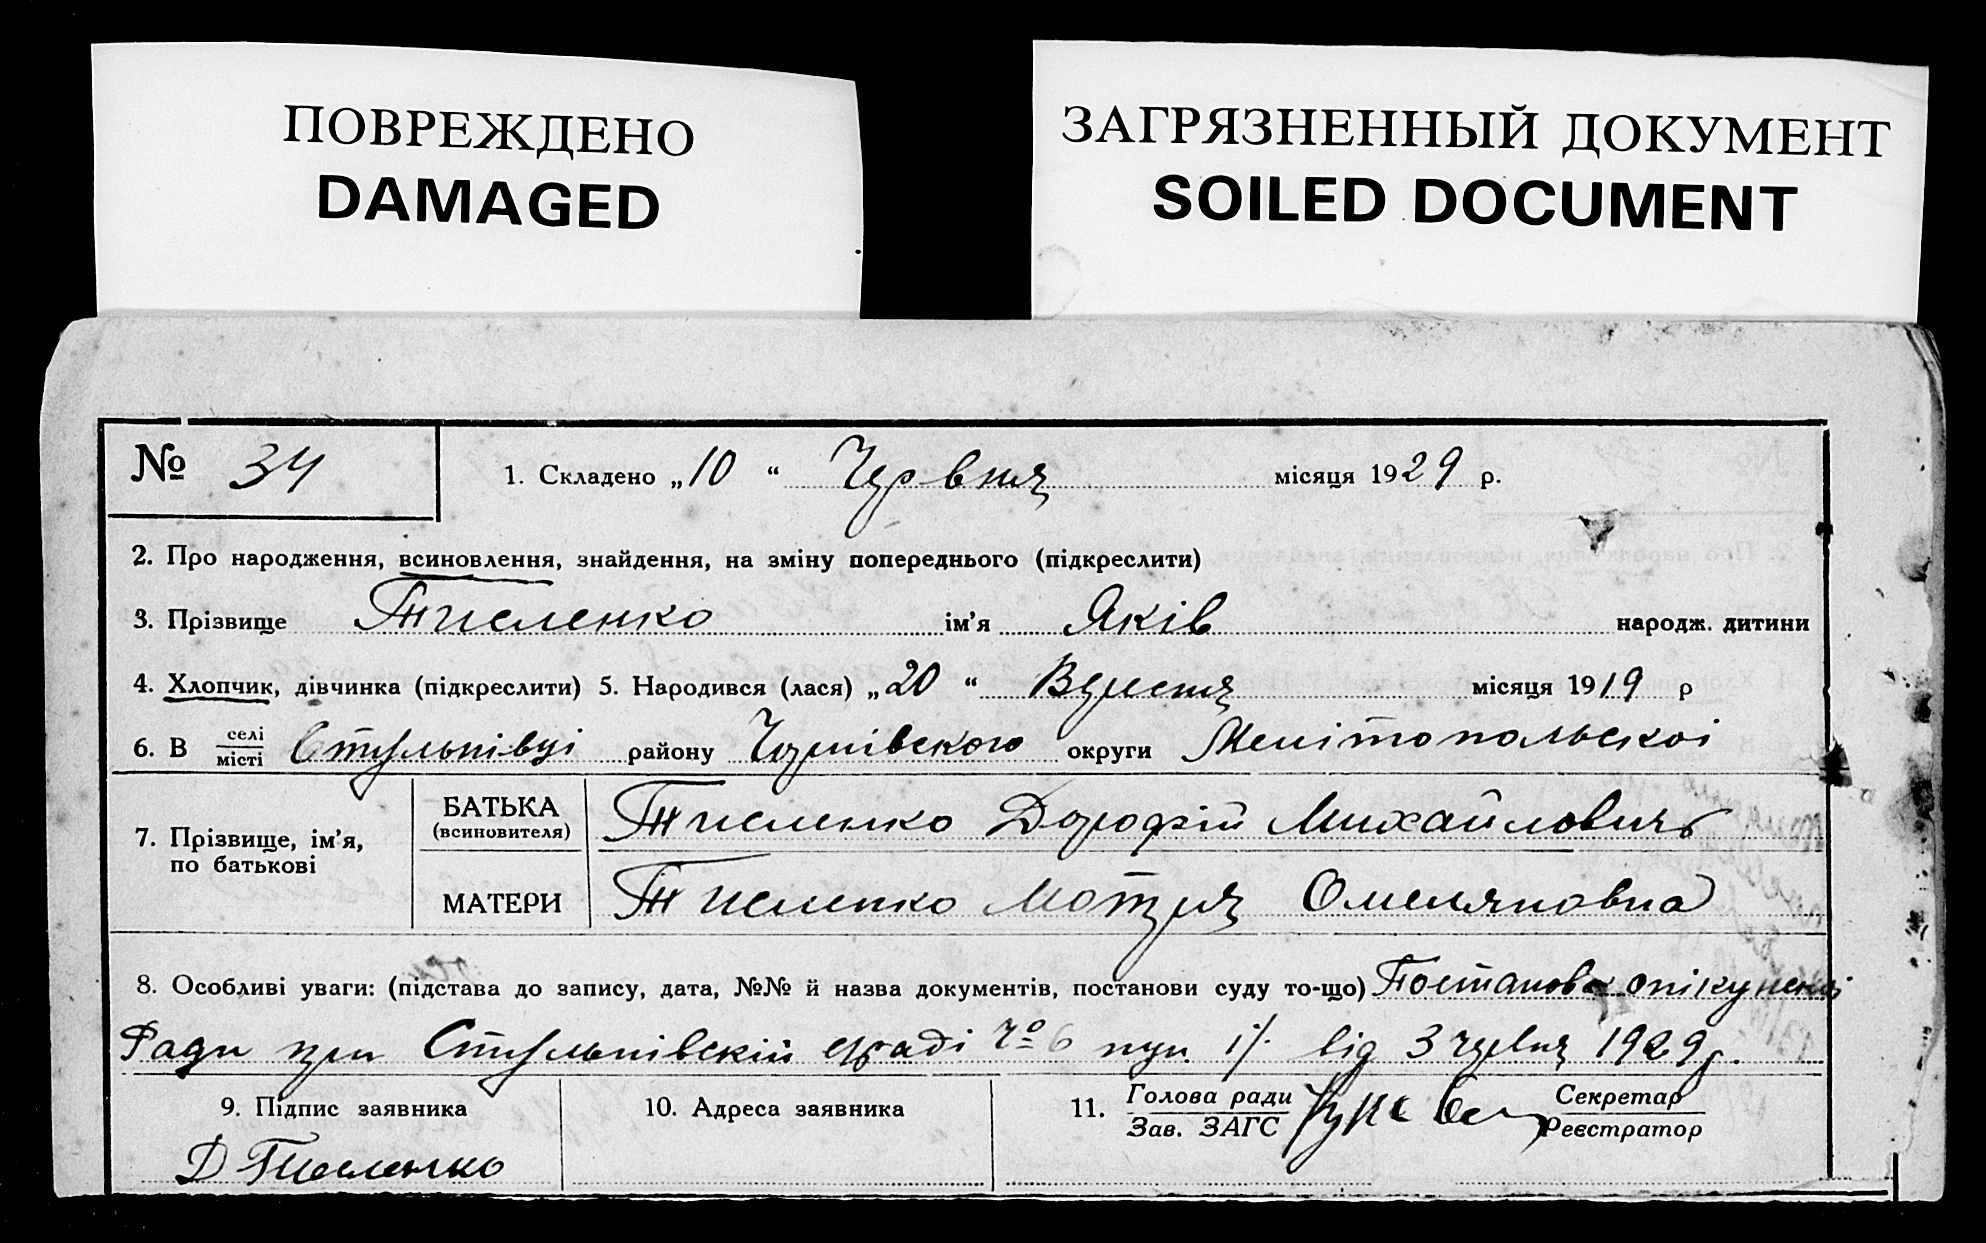 ПОВРЕЖДЕНО
DAMAGED
ЗАГРЯЗНЕННЫЙ ДОКУМЕНТ
SOILED DOCUMENT
№ 34
1. Складено „10“ Червня місяця 1929 р.
2. Про народження, всиновлення, знайдення, на зміну попереднього (підкреслити)
3. Прізвище Тисленко ім'я Яків народж. дитини
4. Хлопчик, дівчинка (підкреслити) 5. Народився (лася) „20“ Вересня місяця 1919 р
6. В селі місті Стульнівці району Чернівського округи Мелітопольскоі
7. Прізвище, ім'я, по батькові
БАТЬКА (всиновителя) Тисленко Дорофій Михайлович
МАТЕРИ Тисленко Мотря Омеляновна
8. Особливі уваги: (підстава до запису, дата, №№ й назва документів, постанови суду то-що) Постанова опікунскоі
Ради при Стульнівскій с/раді № 6 пун. від 3 червня 1929 р.
9. Підпис заявника
Д Тисленко
10. Адреса заявника
11. Голова ради Зав. ЗАГС
Секретар Реєстратор